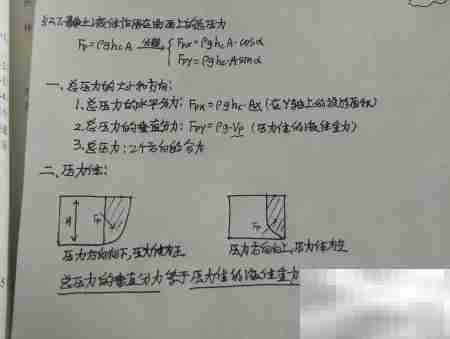 静止液体作用在曲面上的总压力
Fp=ρghcA 分解→ { Fpx=ρghcA·cosα
Fpy=ρghcA·sinα
一、总压力的大小和方向:
1.总压力的水平分力: Fpx=ρghc·Ax(在Y轴上的投影面积)
2.总压力的垂直分力: Fpy=ρg·Vp (压力体的液体重力)
3.总压力:2个方向的合力
二、压力体:
H Fp Fp
压力方向向下,压力体为正 压力方向向上,压力体为
总压力的垂直分力等于压力体的液体重力